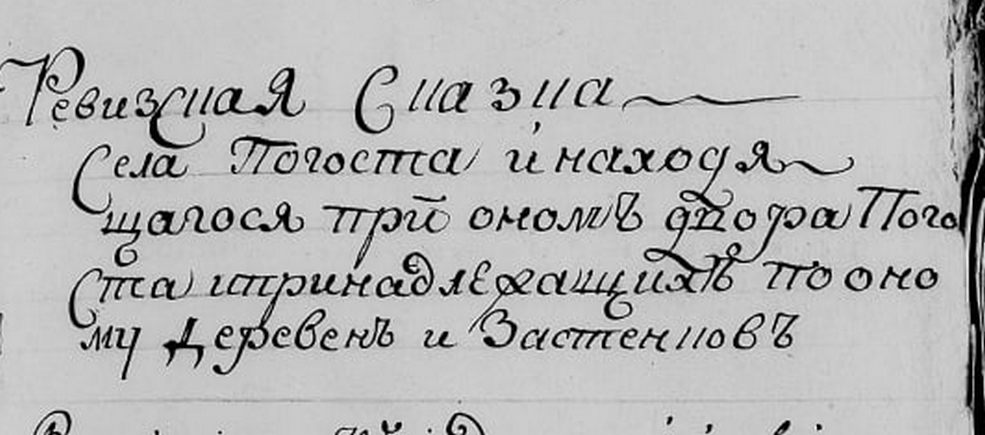 Ревизская Сказка
Села Погоста и находя
щагося при ономъ двора Пого
ста ипринадлежащихъ по оно
му Деревень и Застенковъ